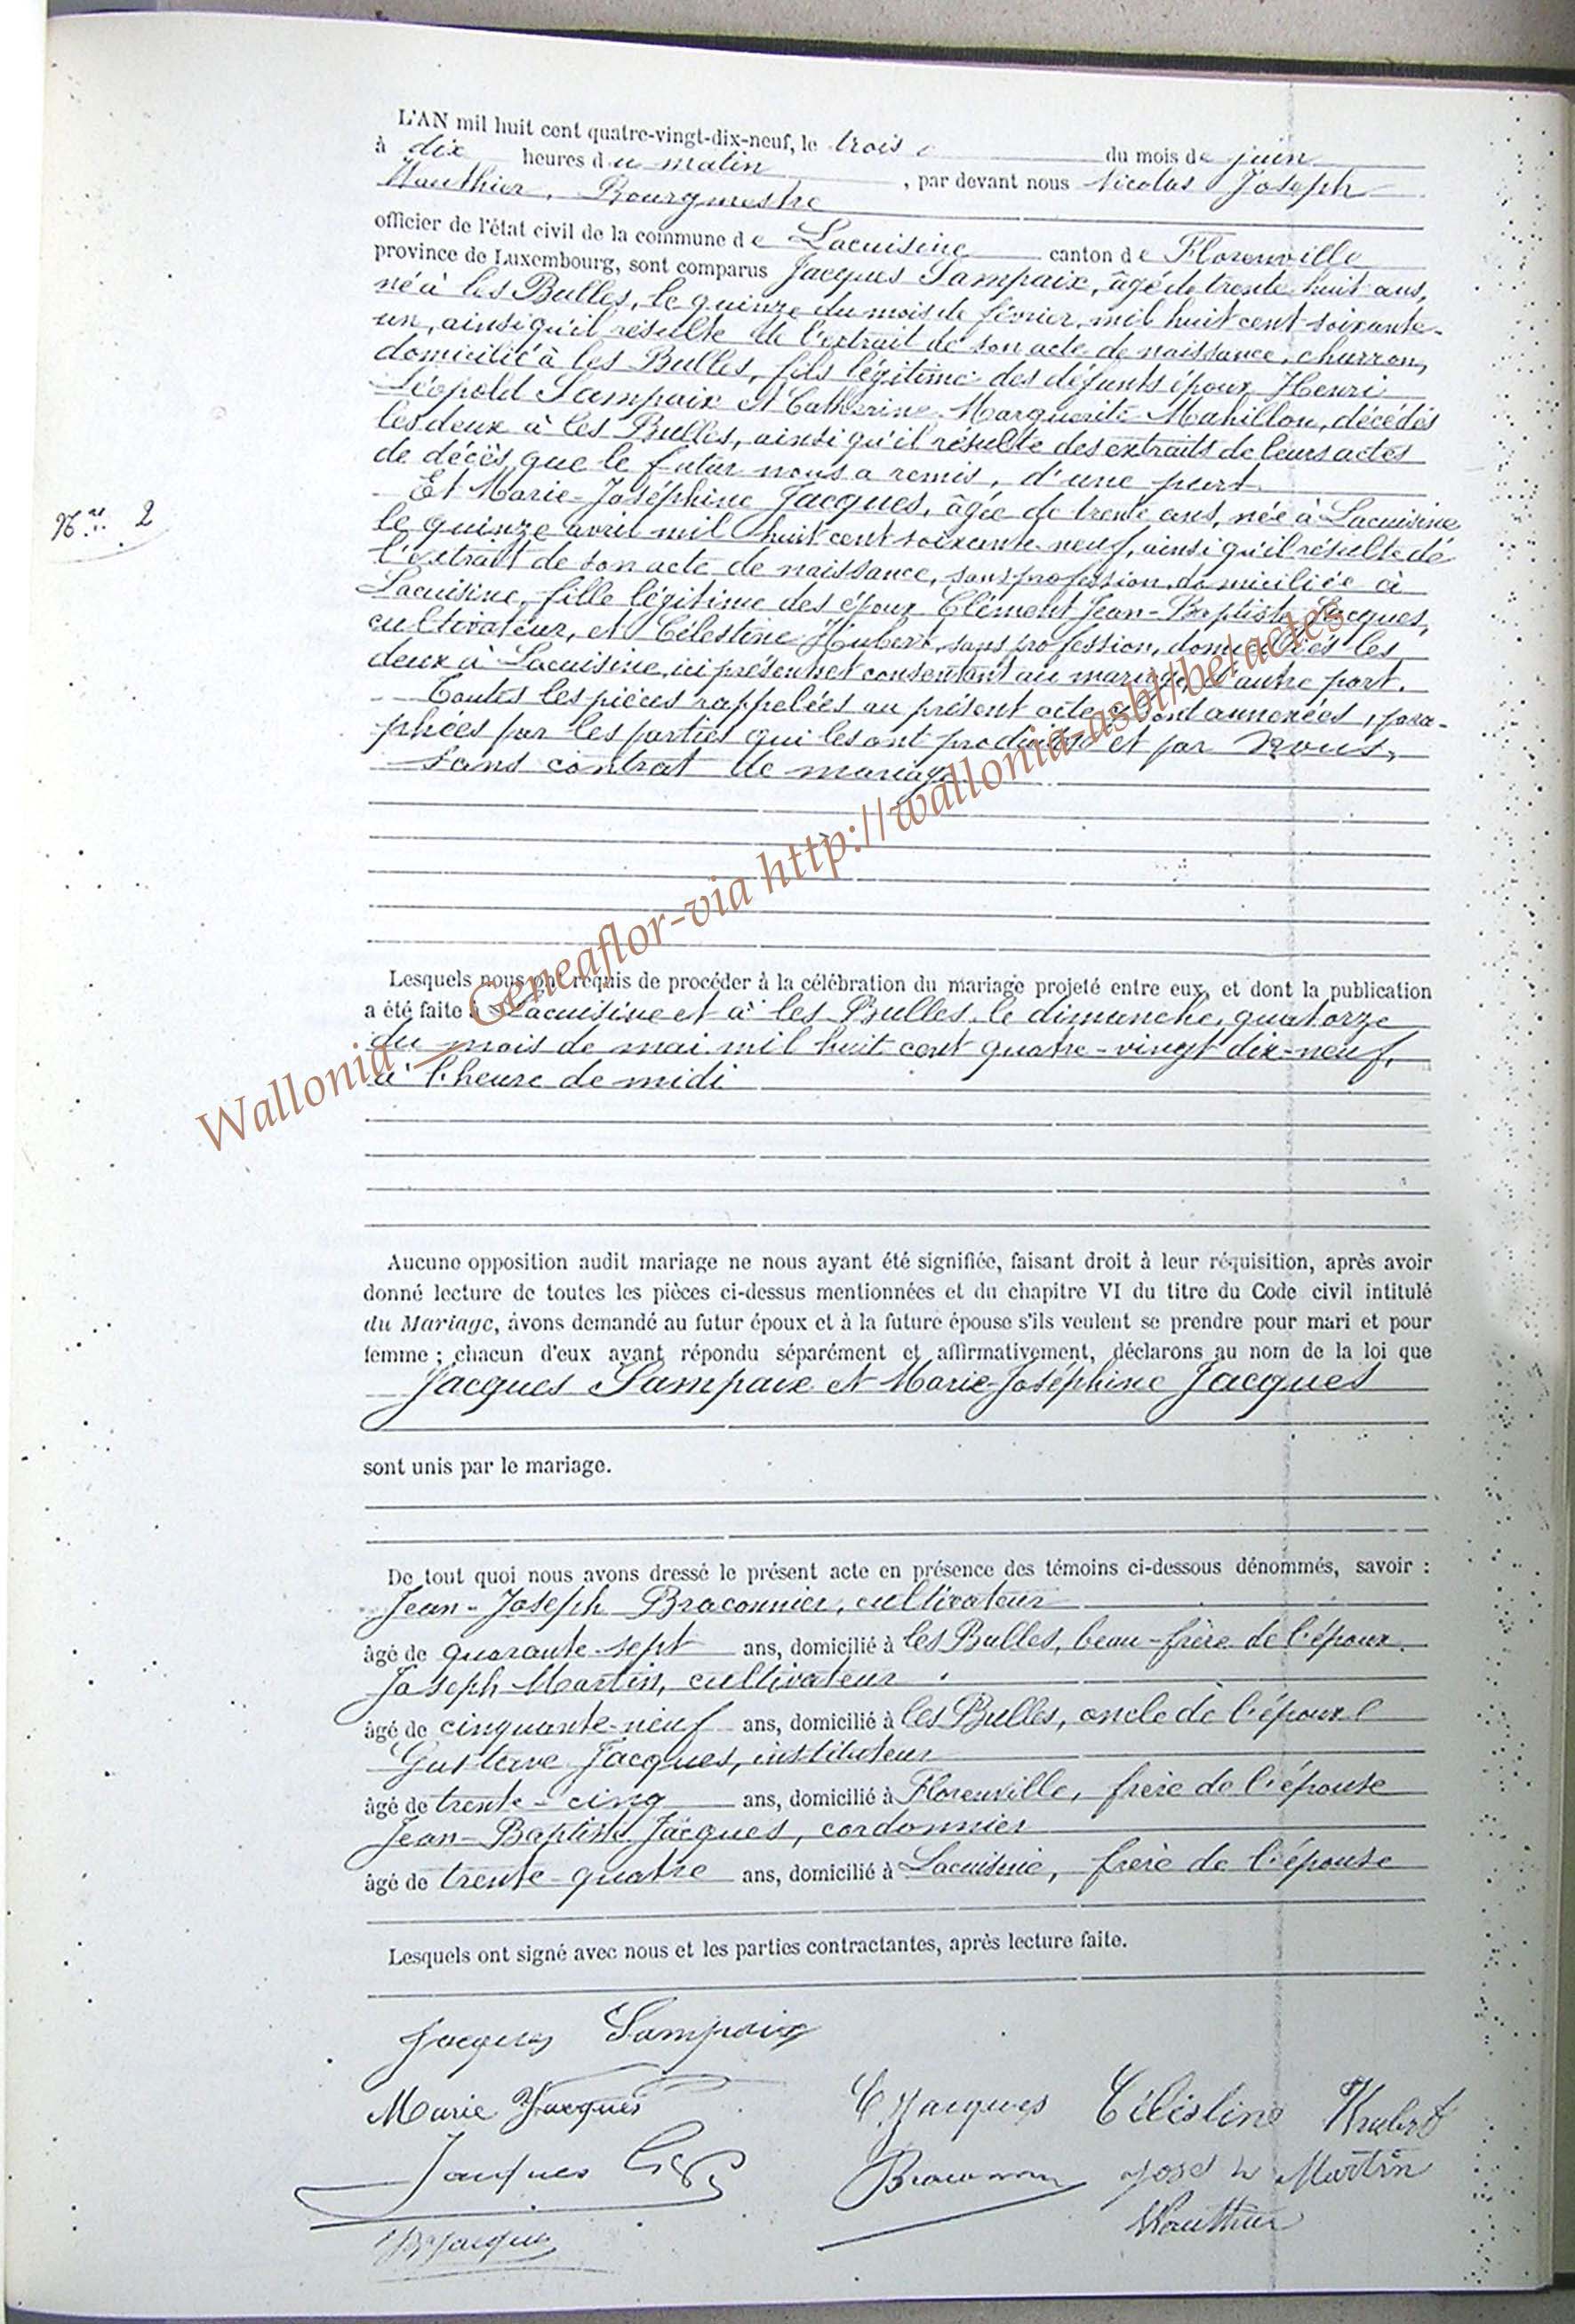 L'AN mil huit cent quatre-vingt-dix-neuf, le trois du mois de juin
à dix heures du matin, par devant nous Nicolas Joseph
Wauthier, Bourgmestre
officier de l'état civil de la commune de Lacuisine canton de Florenville
province de Luxembourg, sont comparus Jacques Sampaix, âgé de trente huit ans,
né à les Bulles, le quinze du mois de février, mil huit cent soixante-
un, ainsi qu'il résulte de l'extrait de son acte de naissance, charron,
domicilié à les Bulles, fils légitime des défunts époux Henri
Léopold Sampaix et Catherine Marguerite Mahillon, décédés
les deux à les Bulles, ainsi qu'il résulte des extraits de leurs actes
de décès que le futur nous a remis, d'une part.
Et Marie-Joséphine Jacques, âgée de trente ans, née à Lacuisine
N.ro 2
le quinze avril mil huit cent soixante neuf, ainsi qu'il résulte de
l'extrait de son acte de naissance, sans profession, domiciliée à
Lacuisine, fille légitime des époux Clément Jean-Baptiste Jacques,
cultivateur, et Célestine Hubert, sans profession, domiciliés les
deux à Lacuisine, ici présents et consentant au mariage, d'autre part.
Toutes les pièces rappelées au présent acte y sont annexées, para-
phées par les parties qui les ont produites et par Nous,
sans contrat de mariage.
Lesquels nous ont requis de procéder à la célébration du mariage projeté entre eux, et dont la publication
a été faite à Lacuisine et à les Bulles, le dimanche, quatorze
du mois de mai mil huit cent quatre-vingt dix-neuf,
à l'heure de midi
Aucune opposition audit mariage ne nous ayant été signifiée, faisant droit à leur réquisition, après avoir
donné lecture de toutes les pièces ci-dessus mentionnées et du chapitre VI du titre du Code civil intitulé
du Mariage, avons demandé au futur époux et à la future épouse s'ils veulent se prendre pour mari et pour
femme ; chacun d'eux ayant répondu séparément et affirmativement, déclarons au nom de la loi que
Jacques Sampaix et Marie-Joséphine Jacques
sont unis par le mariage.
De tout quoi nous avons dressé le présent acte en présence des témoins ci-dessous dénommés, savoir :
Jean-Joseph Braconnier, cultivateur
âgé de quarante-sept ans, domicilié à les Bulles, beau-frère de l'époux
Joseph Martin, cultivateur
âgé de cinquante-neuf ans, domicilié à les Bulles, oncle de l'époux
Gustave Jacques, instituteur
âgé de trente-cinq ans, domicilié à Florenville, frère de l'épouse
Jean-Baptiste Jacques, cordonnier
âgé de trente-quatre ans, domicilié à Lacuisine, frère de l'épouse
Lesquels ont signé avec nous et les parties contractantes, après lecture faite.
Jacques Sampaix
Marie Jacques C. Jacques Célestine Hubert
Jacques Braconnier Joseph Martin
Wauthier
JB Jacques
Wallonia - Geneaflor-via http://wallonia-asbl/be/actes